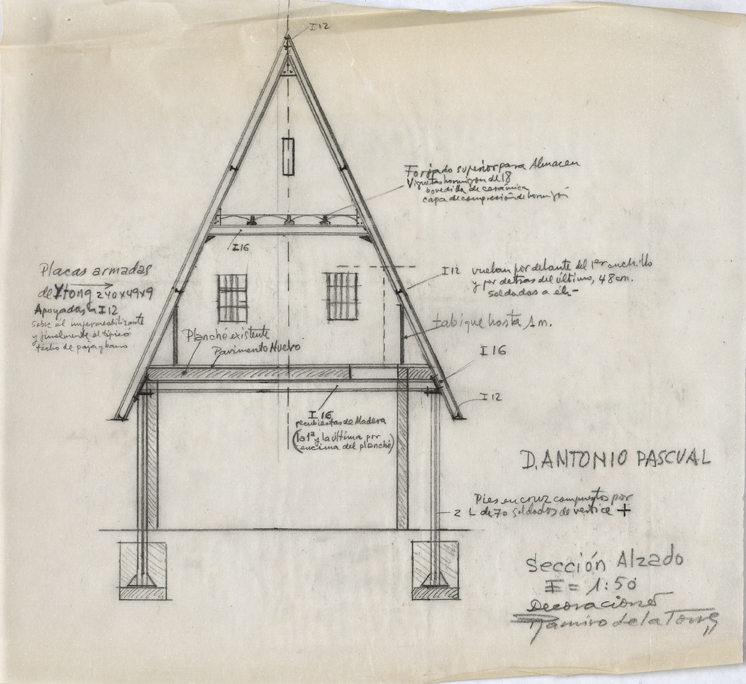 I12
Forjado superior para Almacen
Viguetas hormigon de 18
bovedilla de cerámica
capa de compresión de hormigón
I16
Placas armadas
de Ytong 240x49x9
Apoyadas en I12
sobre el impermeabilizante
y finalmente el típico
techo de paja y barro
I12 vuelan por delante del 1er cuchillo
y por detras del último, 48 cm.
soldados a él-
tabique hasta 1 m.
Planché existente
Pavimento Nuevo
I16
I12
I16
recubiertas de Madera
(la 1ª y la última por
encima del planché)
D. ANTONIO PASCUAL
Pies en cruz compuestos por
2 L de 70 soldados de vertice +
Sección Alzado
E = 1:50
Decoraciones
Ramiro de la Torre